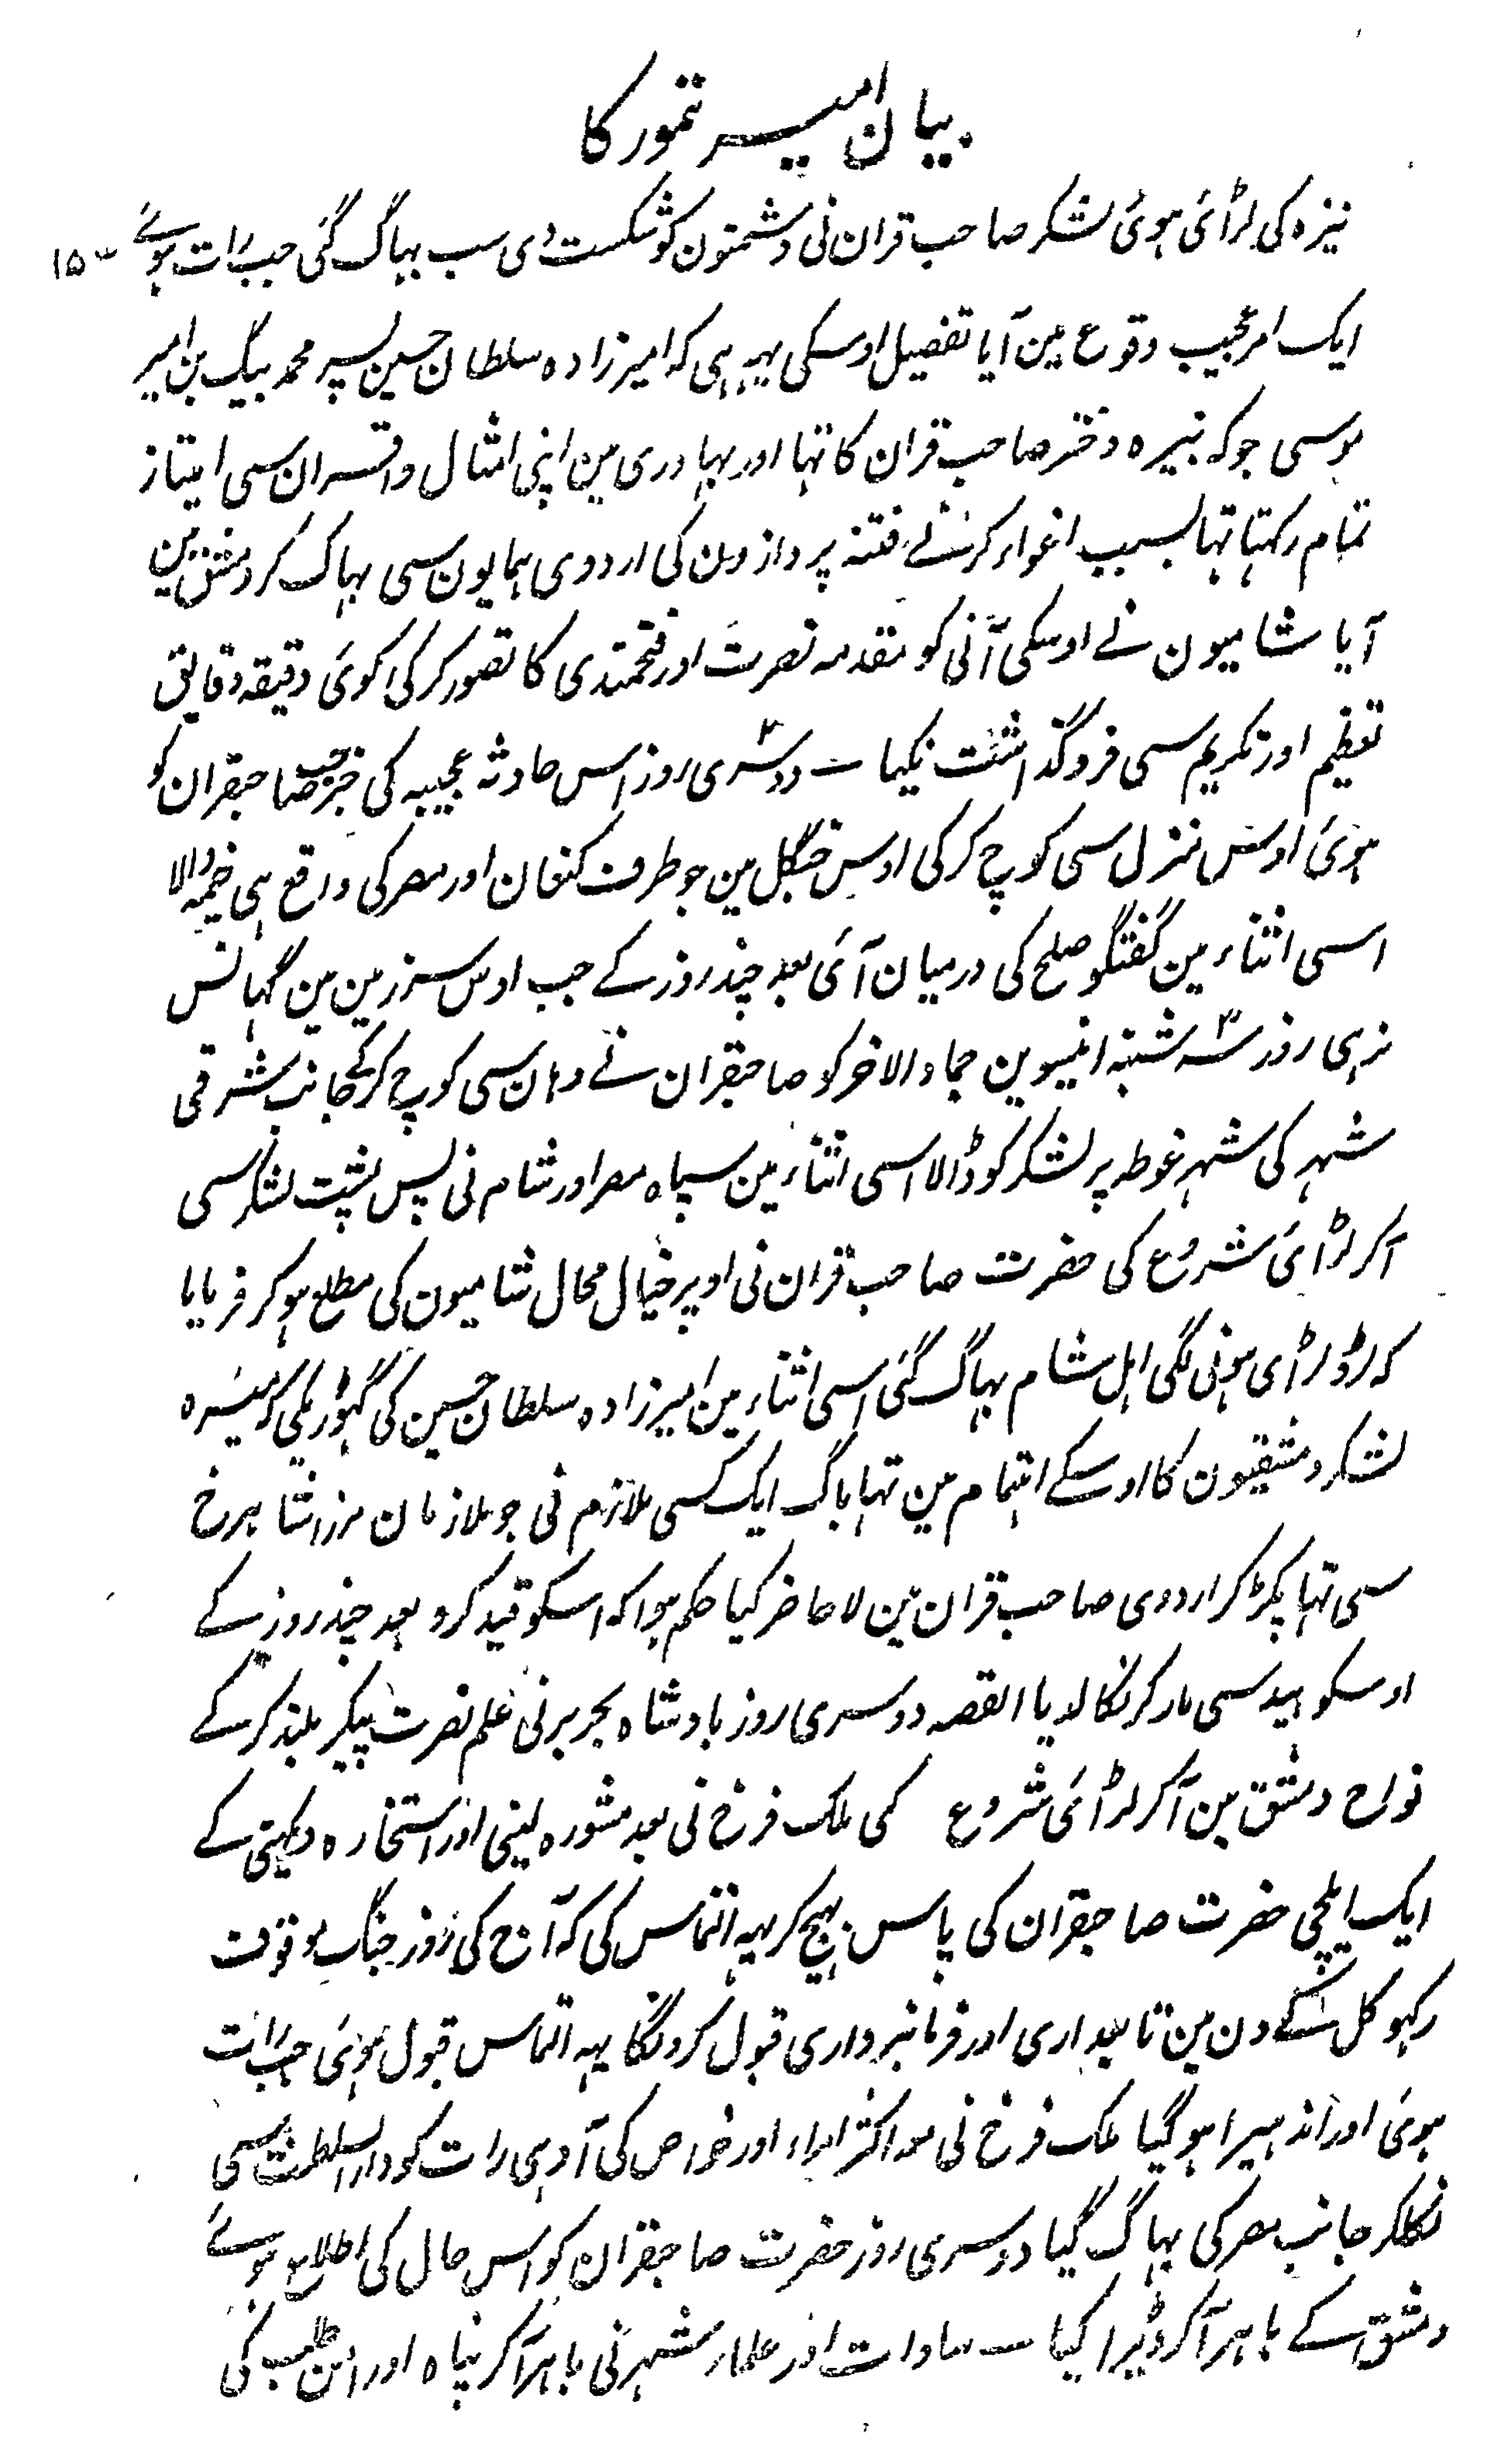 بیان امیر تیمور کا
نیزہ کی لڑائی ہوئی لشکر صاحب قران نی دشمنون کو شکست دی سب بہاگ گئی جب رات ہوئے ۱۵۳
ایک امر عجیب وقوع مین آیا تفصیل اوسکی یہہ ہی کہ امیر زادہ سلطان حسین پسر محمد بیگ بن امیر
موسی جو کہ نبیرہ دختر صاحب قران کا تہا اور بہادری مین اپنی امثال و اقران سی امتیاز
تمام رکہتا تہا بسبب اغواء کرنے فتنہ پردازون کی اردوی ہمایون سی بہاگ کر دمشق مین
آیا شامیون نے اوسکی آنی کو مقدمہ نصرت اور فتحمندی کا تصور کر کی کوئی دقیقہ دقایق
تعظیم اور تکریم سی فروگذاشت نکیا ۔ دوسری روز اس حادثہ عجیبہ کی خبر جب صاحبقران کو
ہوئی اوس منزل سی کوچ کر کی اوس جنگل مین جو طرف کنعان اور مصر کی واقع ہی خیمہ ڈالا
اسی اثناء مین گفتگو صلح کی درمیان آئی بعد چند روز کے جب اوس سرزمین مین گہانس
نرہی روز سہ شنبہ انیسوین جماد الاخر کو صاحبقران نے وہان سی کوچ کر کے جانب شرقی
شہر کی شہر غوطہ پر لشکر کو ڈالا اسی اثناء مین سپاہ مصر اور شام نی پس پشت لشکر سی
آکر لڑائی شروع کی حضرت صاحب قران نی اوپر خیال محال شامیون کی مطلع ہو کر فرمایا
کہ لڑو لڑائی ہونی لگی اہل شام بہاگ گئی اسی اثناء مین امیر زادہ سلطان حسین کی گہوڑیکی کہ میسرہ
لشکر دمشقیون کا اوسکے اہتمام مین تہا باگ ایک کسی ملازم نی جو ملازمان مرزا شاہرخ
سی تہا پکڑ کر اردوی صاحب قران مین لا حاضر کیا حکم ہوا کہ اسکو قید کرو بعد چند روز کے
اوسکو بید سی مار کر نکالدیا القصہ دوسری روز بادشاہ بحر بر نی علم نصرت پیکر بلند کر کے
نواح دمشق مین آکر لڑائی شروع کی ملک فرخ نی بعد مشورہ لینی اور استخارہ دیکہنی کے
ایک ایلچی حضرت صاحبقران کی پاس بہیج کر یہہ التماس کی کہ آج کی روز جنگ موقوف
رکہو کل کے دن مین تابعداری اور فرمانبرداری قبول کرونگا یہہ التماس قبول ہوئی جب رات
ہوئی اور اندہیرا ہو گیا ملک فرخ نی مع اکثر امراء اور خواص کی آدہی رات کو دار السلطنت سی
نکلکر جانب مصر کی بہاگ گیا دوسری روز حضرت صاحبقران کو اس حال کی اطلاع ہوئے
دمشق کے باہر آکر ڈیرا کیا ۔ سادات اور علماء شہر نی باہر آکر پناہ اور امن طلب کی